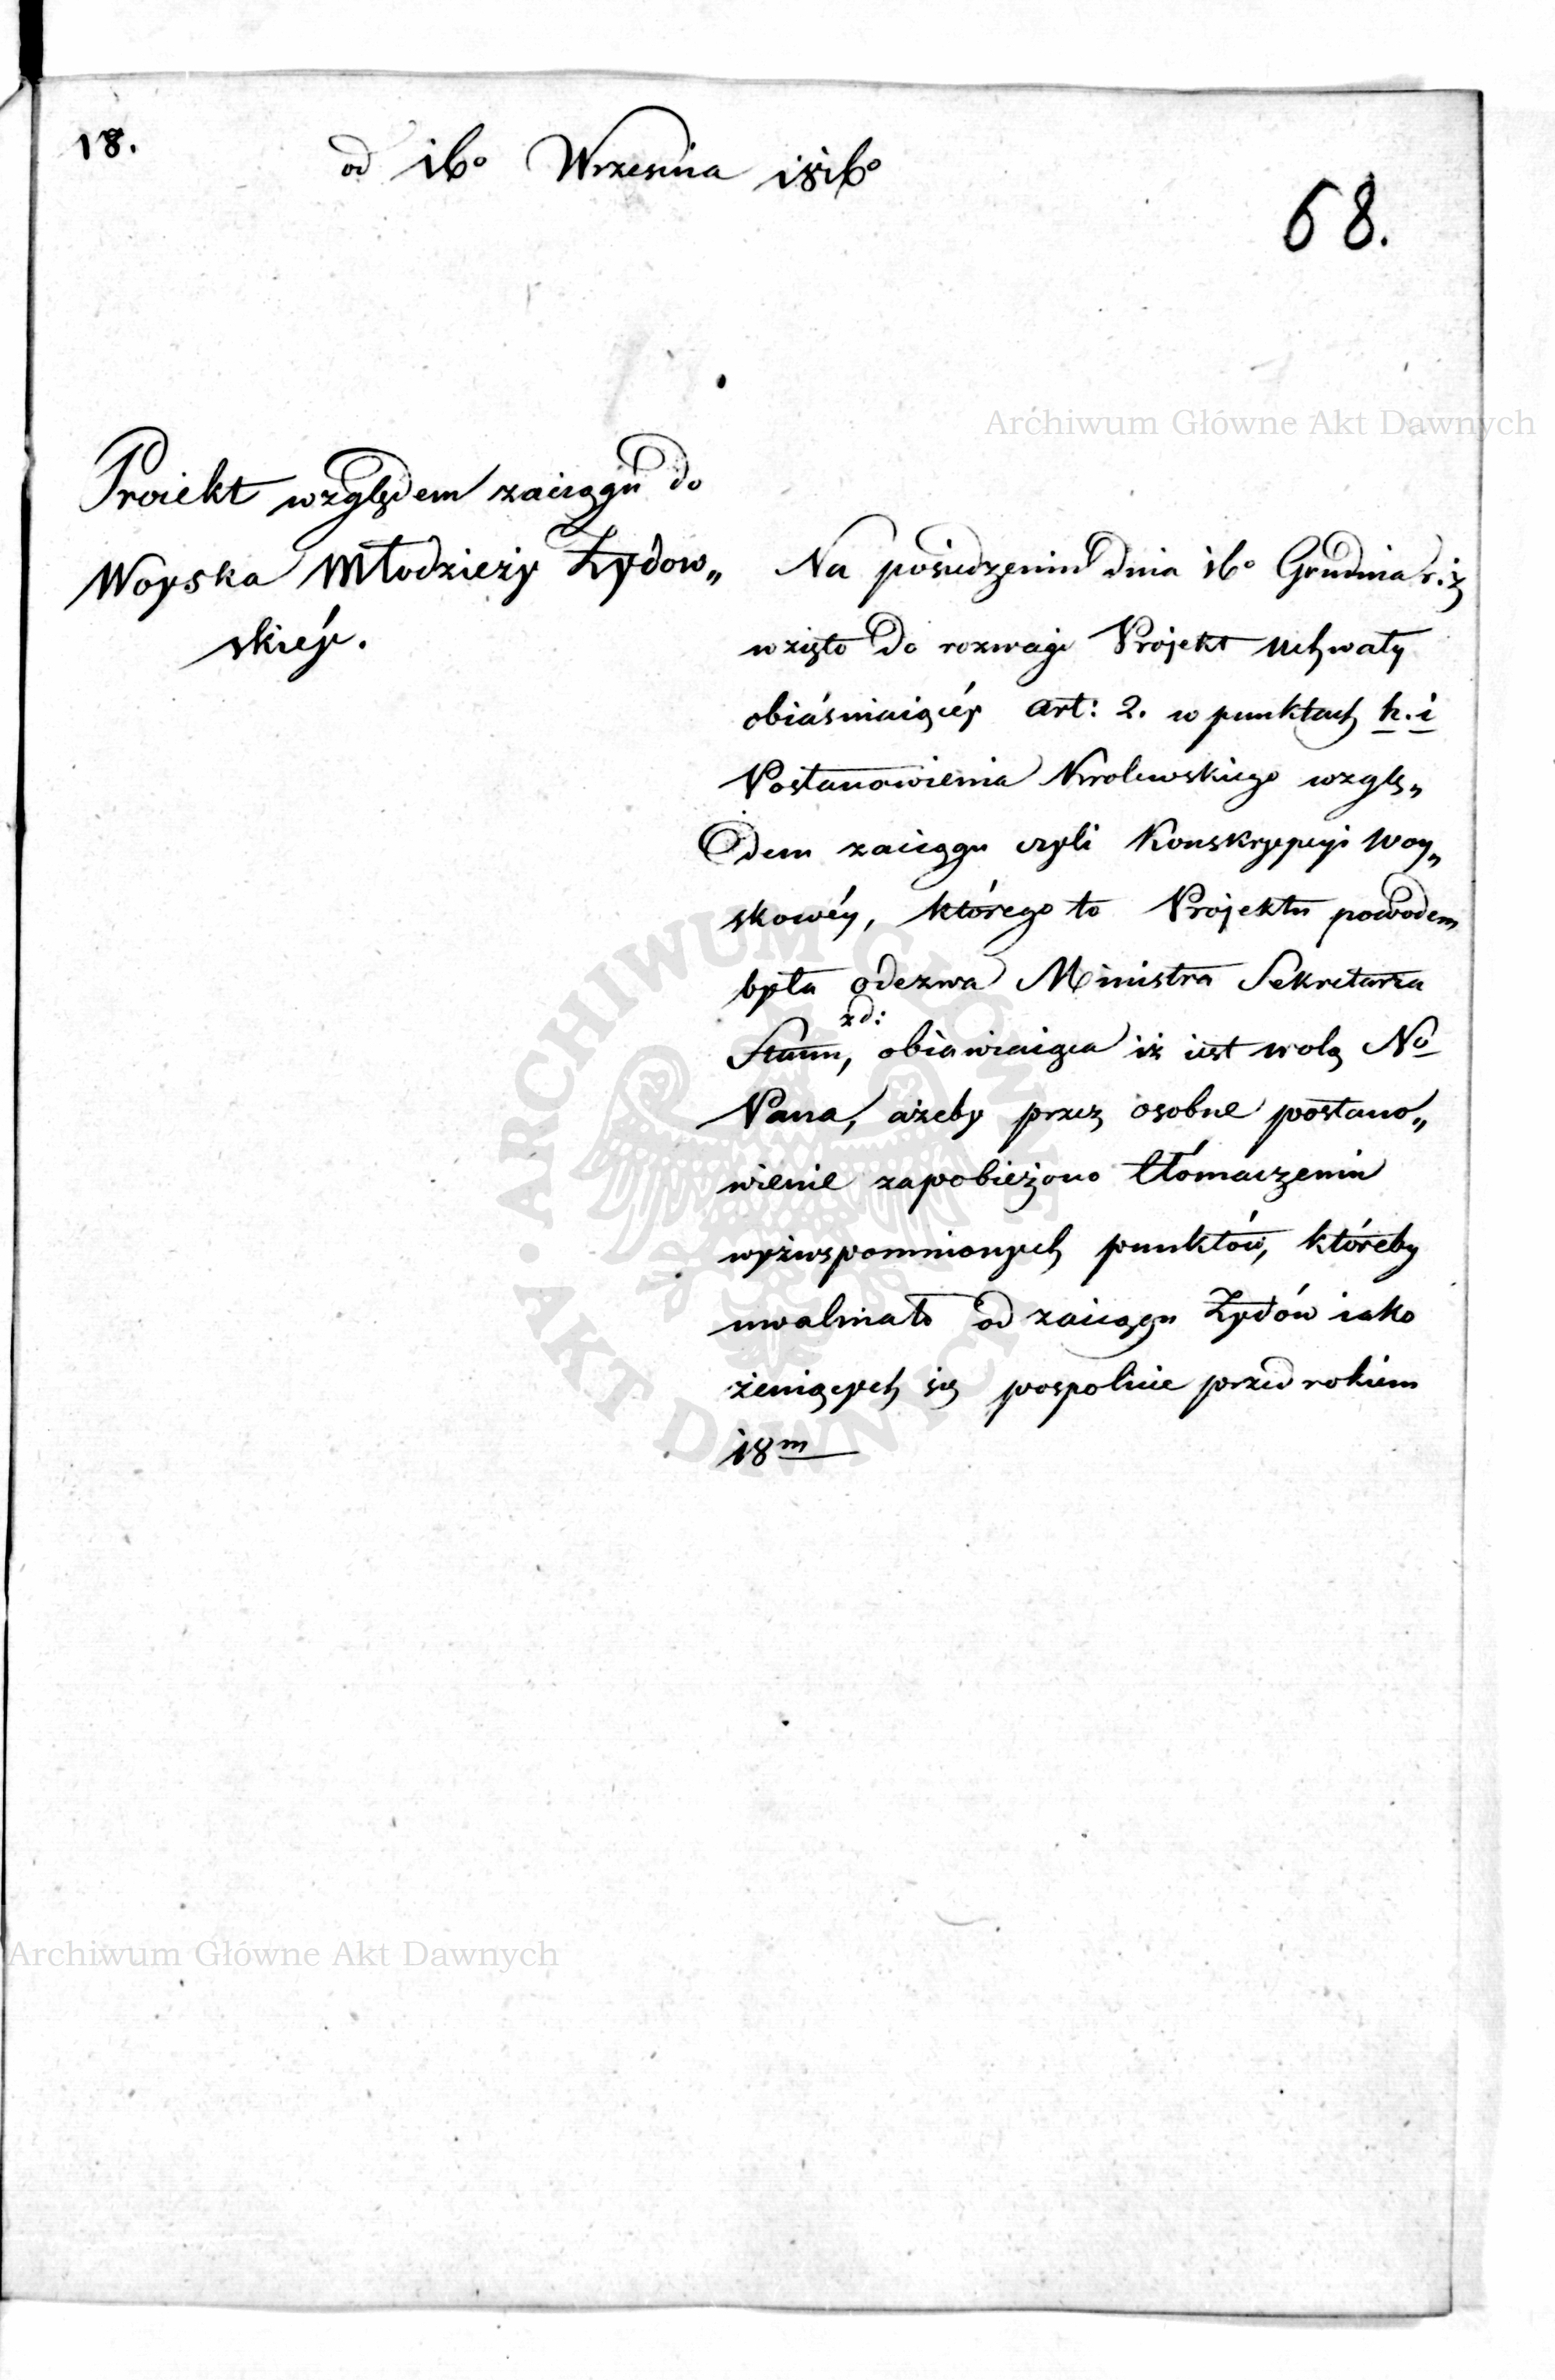 18.
od 16º Września 1816º
68.
Archiwum Główne Akt Dawnych
Proiekt względem zaciągu do
Woyska Młodzieży Żydow„
skiéy.
Na posiedzeniu dnia 16º Grudnia r. z
wzięto do rozwagi Projekt uchwały
obiaśniaiącéy art: 2. w punktach h. i
Postanowienia Krolewskiego wzglę„
dem zaciągu czyli Konskrypcyi Woy„
skowéy, którego to Projektu powodem
była odezwa Ministra Sekretarza
zd:
Stanu, obiawiaiąca iż iest wolą Nº
Pana, ażeby przez osobne postano„
wienie zapobieżono tłómaczeniu
wyżwspomnionych punktów, któreby
uwalniało od zaciągu Żydów iako
żeniących się pospolicie przed rokiem
18m
ARCHIWUM GŁÓWNE AKT DAWNYCH
Archiwum Główne Akt Dawnych